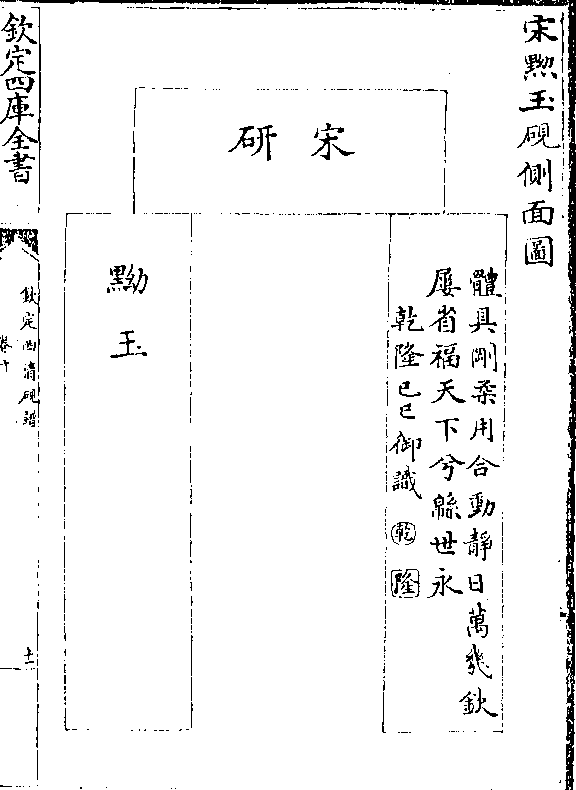 宋黝玉硯側面圖
宋研
體具剛柔用合動靜日萬幾欽
屢省福天下兮緜世永
乾隆己巳御識 乾 隆
黝玉
欽定四庫全書
欽定西清硯譜
卷十
十一